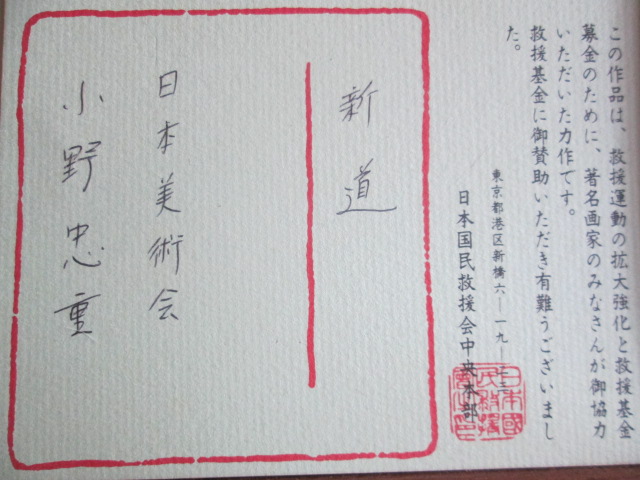 この作品は、救援運動の拡大強化と救援基金
募金のために、著名画家のみなさんが御協力
いただいた力作です。
救援基金に御賛助いただき有難うございまし
た。
東京都港区新橋六―一九―二三
日本国民救援会中央本部
新道
日本美術会
小野忠重